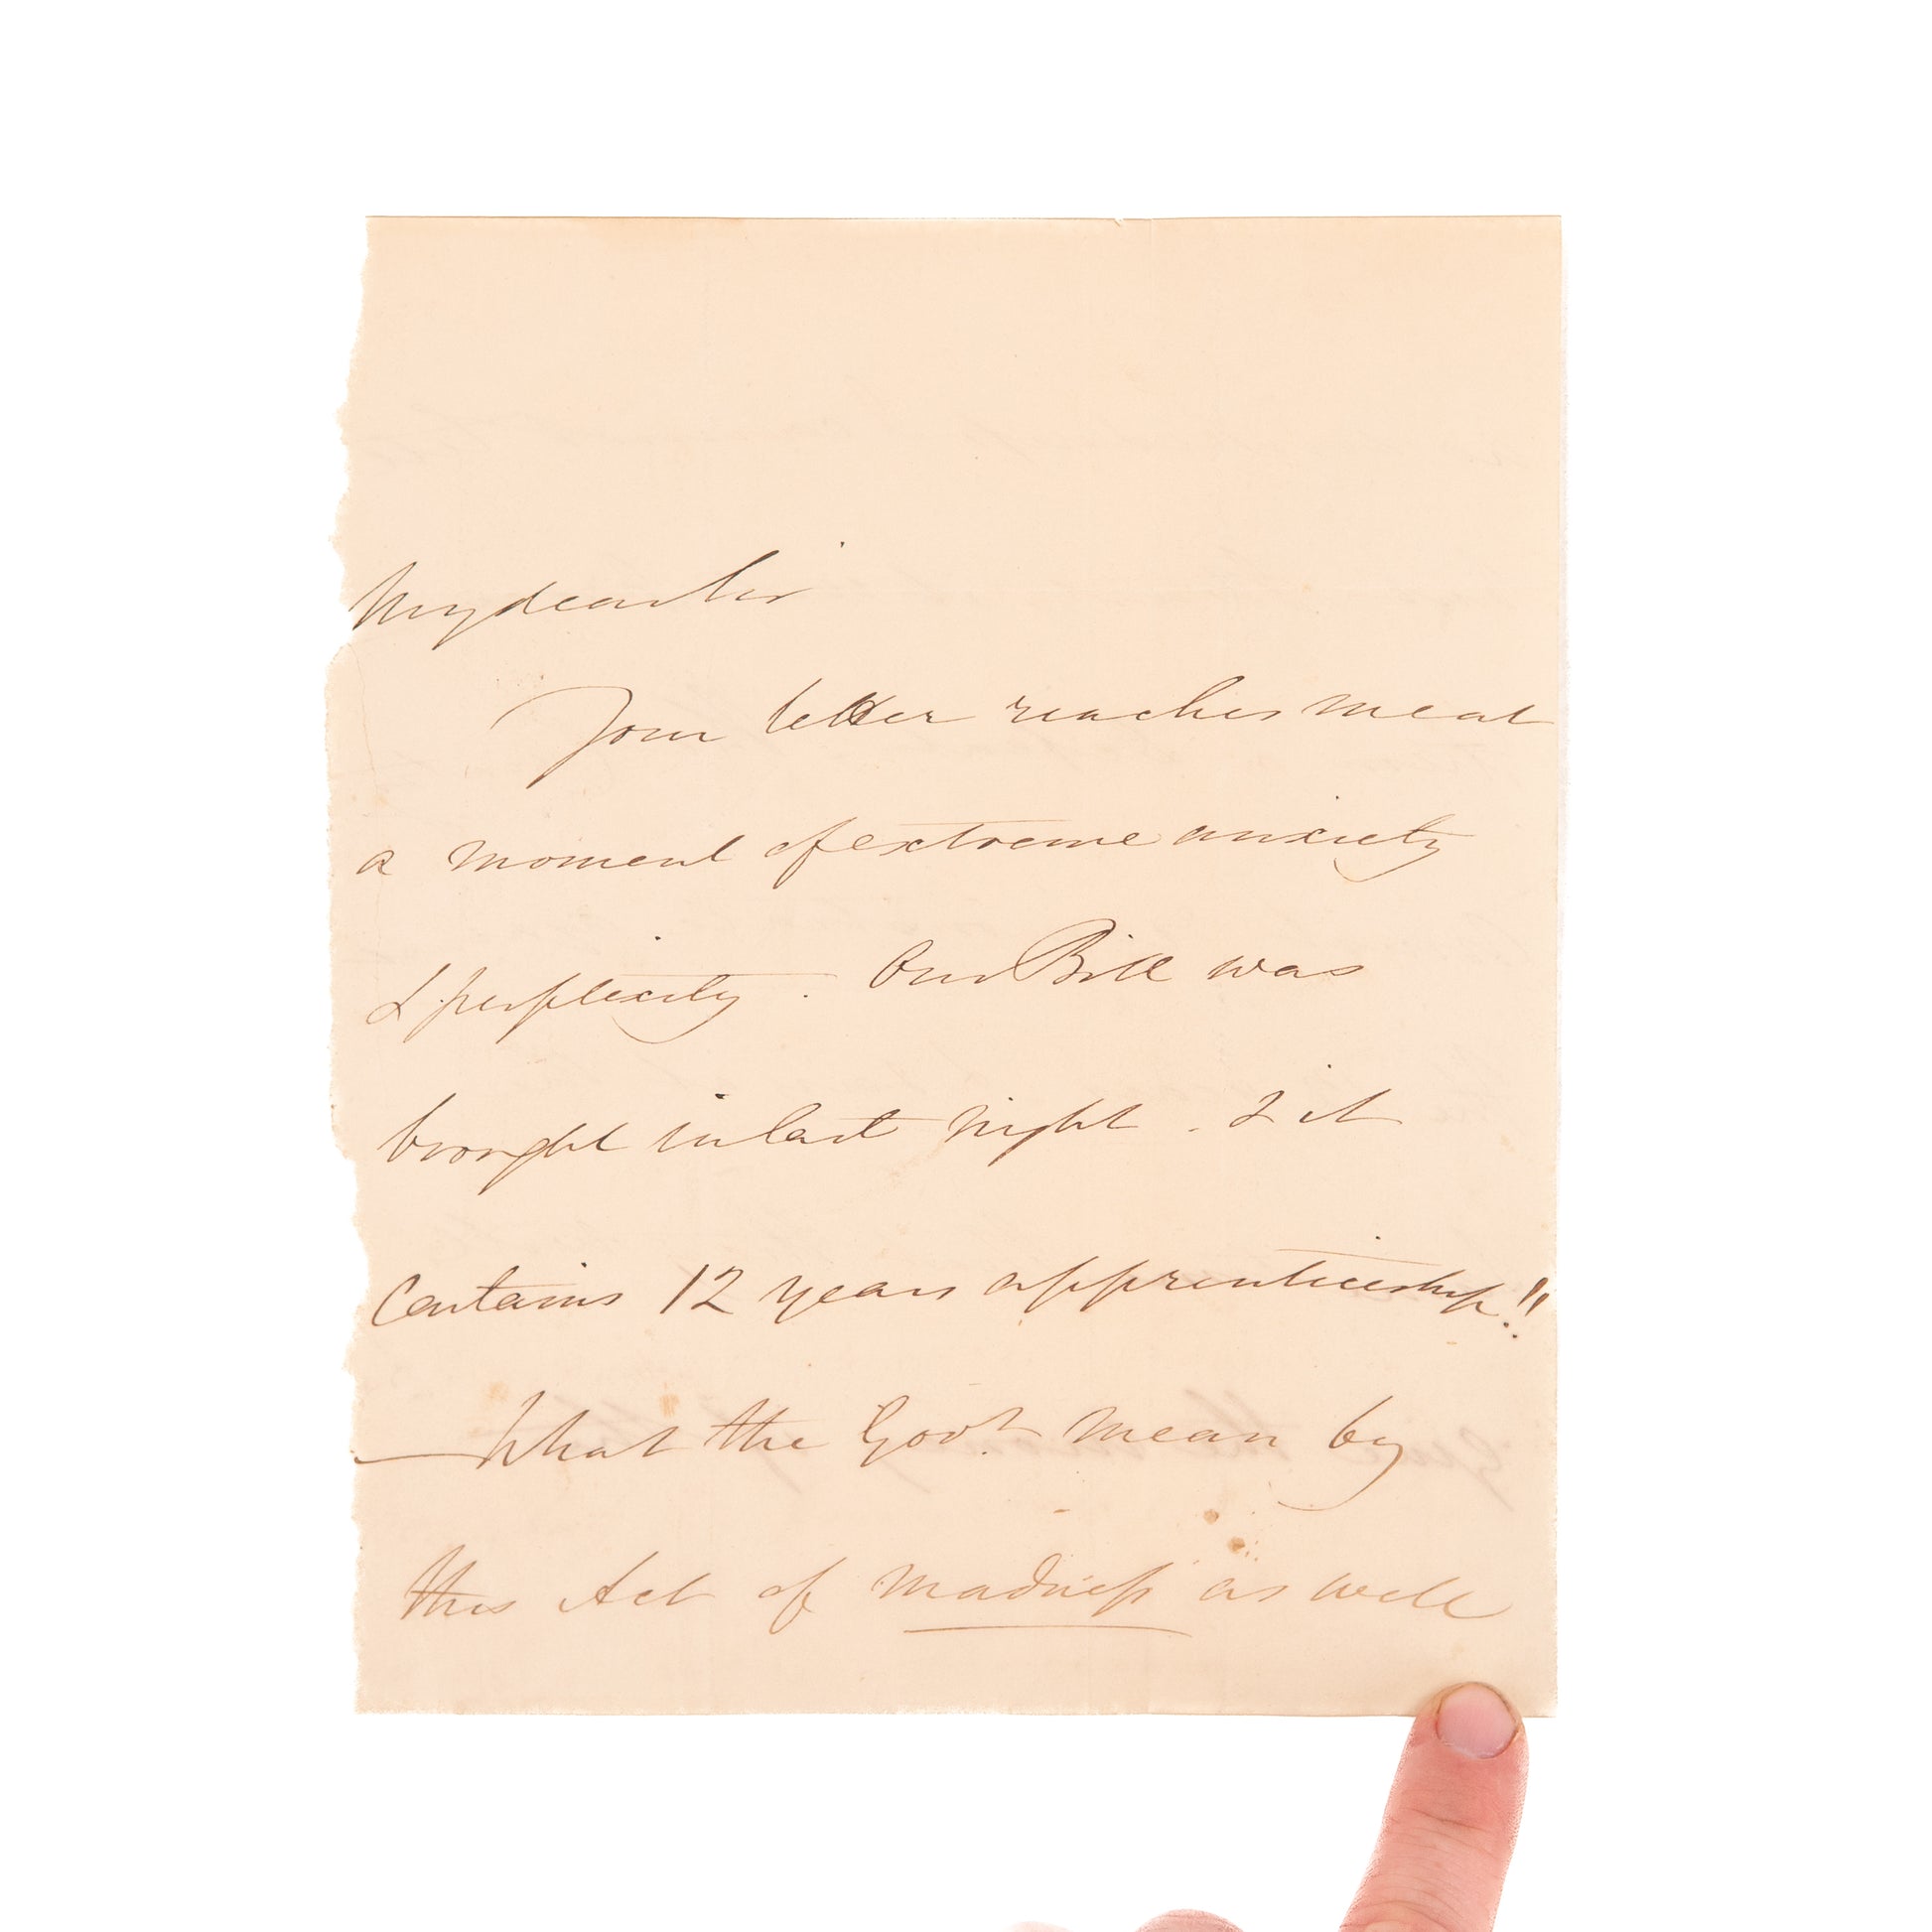 My dear Sir
Your letter reaches me at
a moment of extreme anxiety
& perplexity. Our Bill was
brought in last night. & it
Contains 12 years apprenticeship!!
— What the Govt. mean by
this Act of madness as well